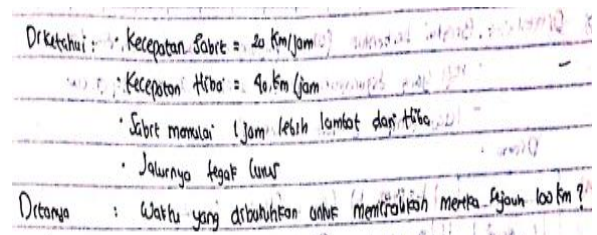 Diketahui : · Kecepatan Sabit = 20 km/jam
· Kecepatan Hiba = 40 km/jam
· Sabit memulai 1 jam lebih lambat dari Hiba
· Jalurnya tegak lurus
Ditanya : Waktu yang dibutuhkan untuk memisahkan mereka sejauh 100 km ?